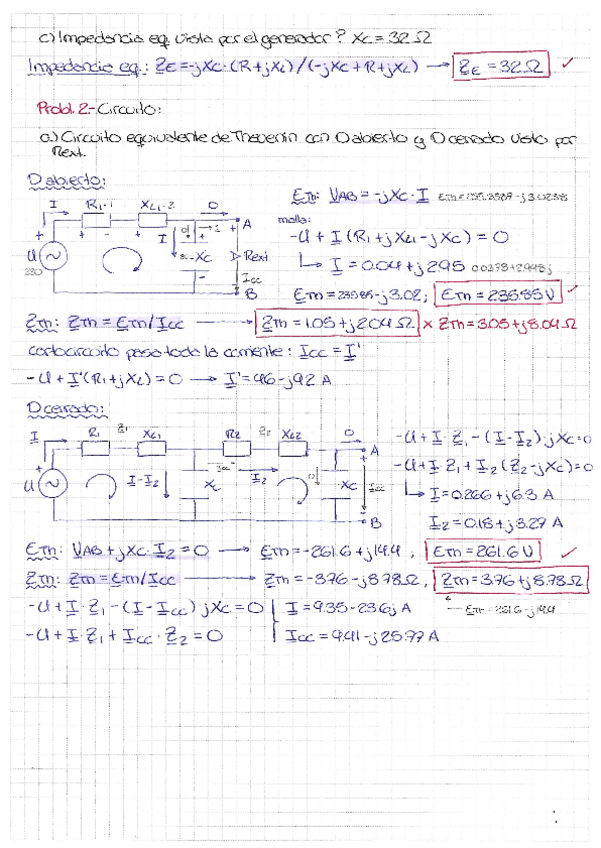 c) Impedancia eq. vista por el generador? Xc = 32 Ω
Impedancia eq.: ZE = -jXc·(R+jXL)/(-jXc+R+jXL) → ZE = 32 Ω ✓
Probl. 2.- Circuito:
a) Circuito equivalente de Thevenin con D abierto y D cerrado visto por Rext.
D abierto:
I R1-1 XL1-2 0 A
U 230 I -Xc Rext Icc B
ETh: VAB = -jXc·I
malla:
-U + I(R1+jXL1-jXc) = 0
I = 0.04+j2.95
ETh = 235.85-j3.02; ETh = 235.85 V ✓
ZTh: ZTh = ETh/Icc → ZTh = 1.05+j2.04 Ω × ZTh = 3.05+j8.04 Ω
cortocircuito pasa toda la corriente: Icc = I'
-U + I'(R1+jXL) = 0 → I' = 46-j92 A
D cerrado:
I R1 Z1 XL1 R2 Z2 XL2 0 A
U I-I2 Xc I2 Xc Icc B
-U+I·Z1-(I-I2)·jXc=0
-U+I·Z1+I2(Z2-jXc)=0
I = 0.266+j6.3 A
I2 = 0.18+j3.27 A
ETh: VAB+jXc·I2 = 0 → ETh = -261.6+j14.4, ETh = 261.6 V ✓
ZTh: ZTh = ETh/Icc → ZTh = -3.76-j8.78 Ω, ZTh = 3.76+j8.78 Ω
-U+I·Z1-(I-Icc)jXc = 0 I = 9.35-23.6j A
ETh = 261.6-j14.4
-U+I·Z1+Icc·Z2 = 0 Icc = 9.41-j25.77 A